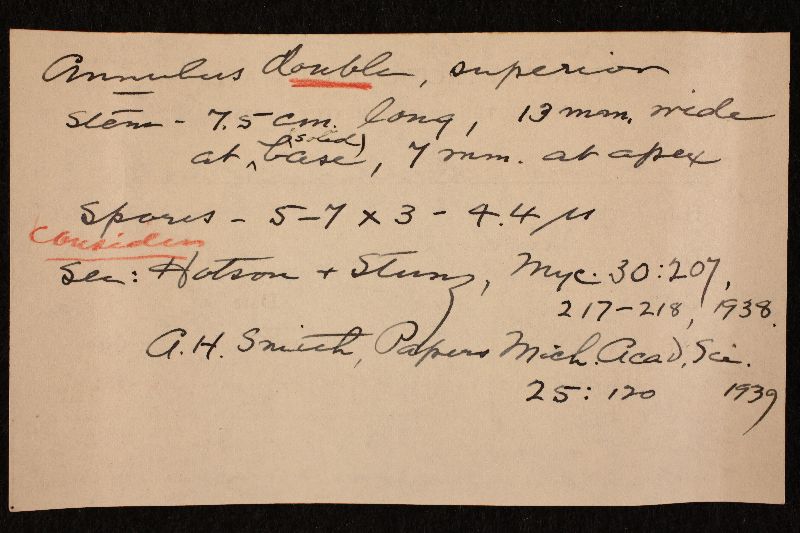 Annulus double, superior
Stem - 7.5 cm. long, 13 mm. wide
at (solid) base, 7 mm. at apex
Spores - 5-7 x 3 - 4.4 µ
Consider
See: Hotson + Stunz, Myc. 30:207,
217-218, 1938.
A.H. Smith, Papers Mich. Acad. Sci.
25: 120 1939